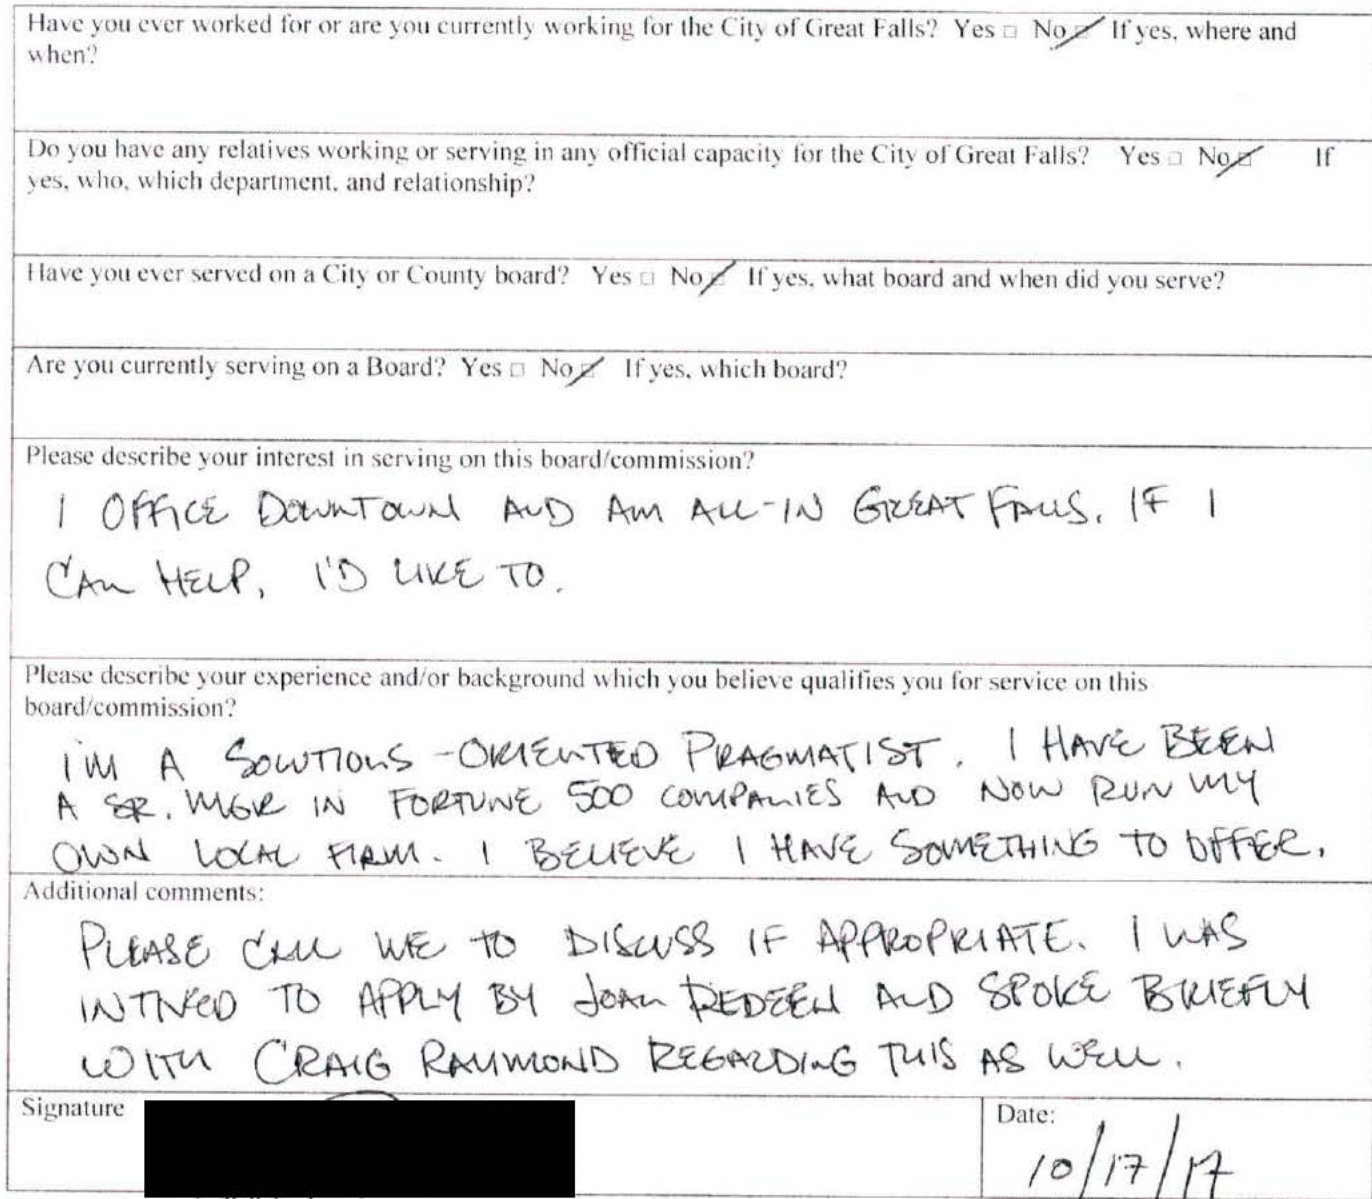 Have you ever worked for or are you currently working for the City of Great Falls? Yes □ No ☑ If yes, where and
when?
Do you have any relatives working or serving in any official capacity for the City of Great Falls? Yes □ No ☑ If
yes, who, which department, and relationship?
Have you ever served on a City or County board? Yes □ No ☑ If yes, what board and when did you serve?
Are you currently serving on a Board? Yes □ No ☑ If yes, which board?
Please describe your interest in serving on this board/commission?
I OFFICE DOWNTOWN AND AM ALL-IN GREAT FALLS. IF I
CAN HELP, I'D LIKE TO.
Please describe your experience and/or background which you believe qualifies you for service on this
board/commission?
I'M A SOLUTIONS-ORIENTED PRAGMATIST. I HAVE BEEN
A SR. MGR IN FORTUNE 500 COMPANIES AND NOW RUN MY
OWN LOCAL FIRM. I BELIEVE I HAVE SOMETHING TO OFFER.
Additional comments:
PLEASE CALL ME TO DISCUSS IF APPROPRIATE. I WAS
TO APPLY BY JOAN REDEEN AND SPOKE BRIEFLY
WITH CRAIG RAYMOND REGARDING THIS AS WELL.
Signature
Date:
10/17/17